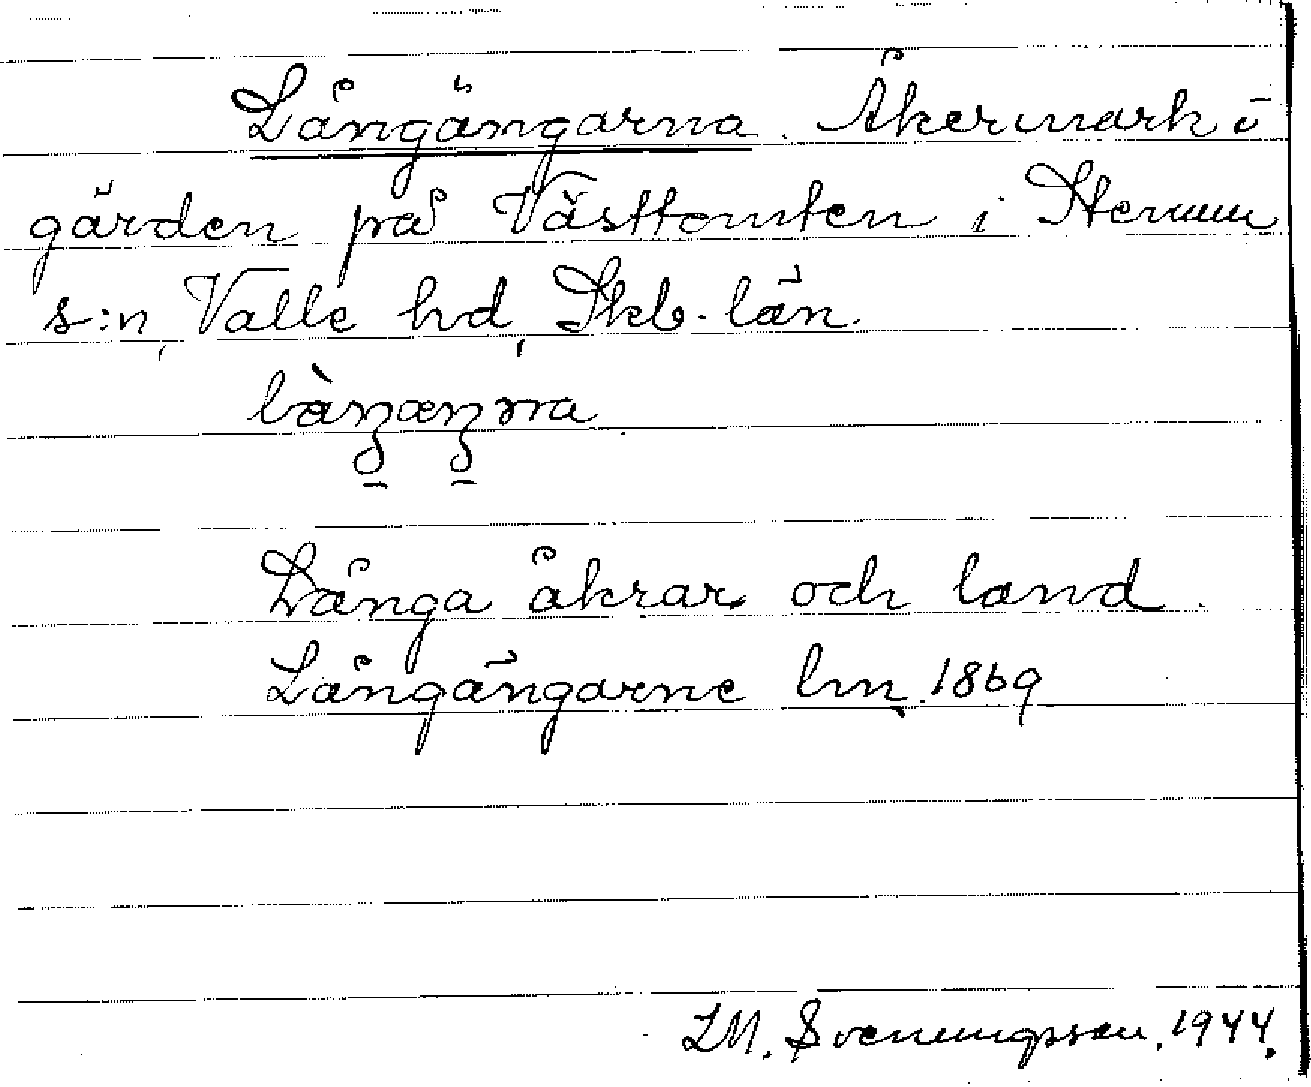 Långängarna. Åkermark i
gärden på Västtomten i Stenum
s:n, Valle hd, Skb. län.
Långa åkrar och land.
Långängarne lm. 1869
L.M. Svenungsson. 1944.